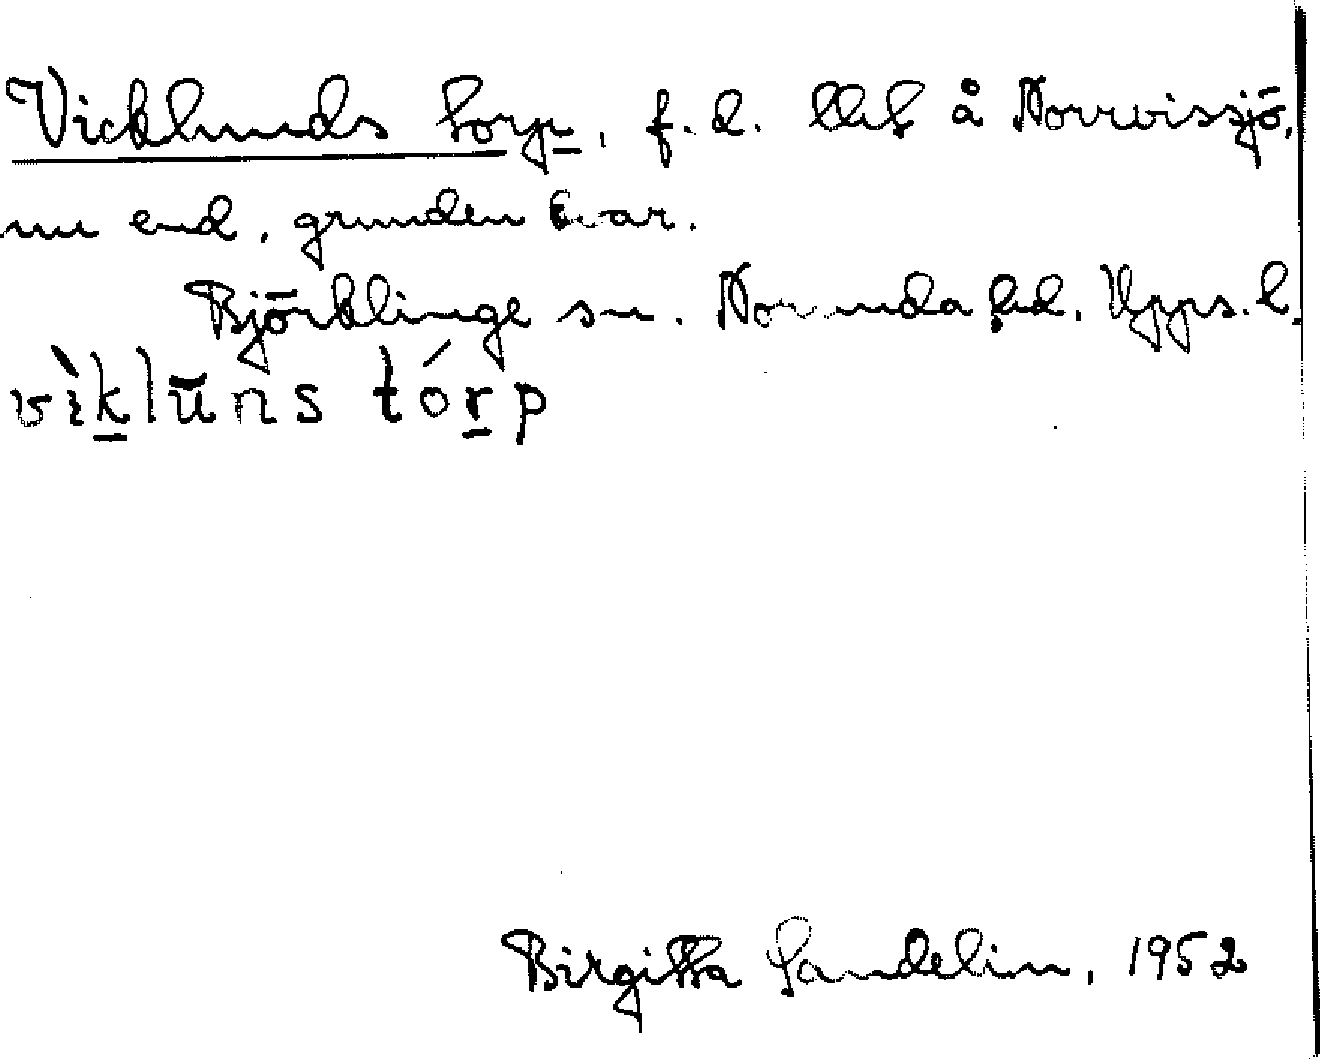 Vicklunds torp, f.d. llht å Norrvissjö,
nu end. grunden kvar.
Björklinge sn. Norunda hd. Upps. l.
vìk̲lūns tórp
Birgitta Sandelin, 1952